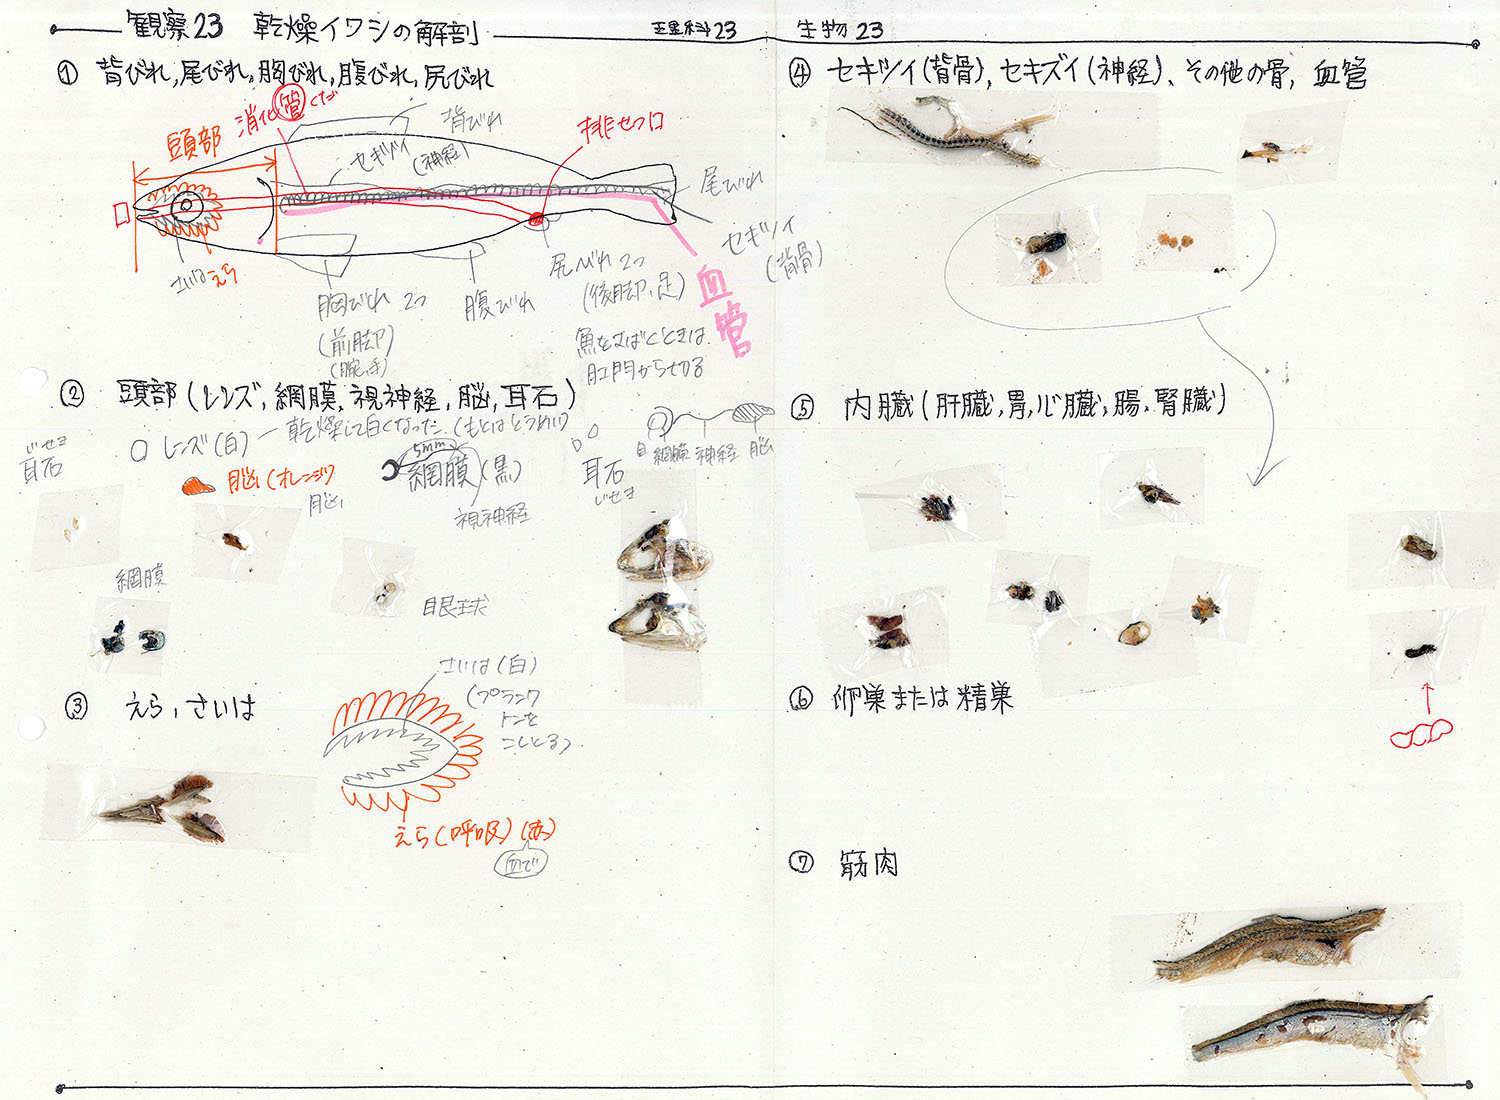 観察23 乾燥イワシの解剖
理科23
生物23
① 背びれ,尾びれ,胸びれ,腹びれ,尻びれ
消化管くだ
頭部
背びれ
セキズイ
(神経)
排せつ口
尾びれ
口
セキツイ
(背骨)
さいは
えら
胸びれ 2つ
(前脚)
(腕,手)
腹びれ
尻びれ 2つ
(後脚,足)
血管
魚をさばくときは
肛門から切る
② 頭部(レンズ,網膜,視神経,脳,耳石)
じせき
耳石
レンズ(白) ー 乾燥して白くなった.(もとはとうめい)
脳(オレンジ)
脳
5mm
網膜(黒)
視神経
耳石
じせき
目 網膜 神経 脳
網膜
眼球
③ えら,さいは
さいは(白)
(プランク
トンを
こしとる)
えら(呼吸)(赤)
血で
④ セキツイ(背骨),セキズイ(神経)、その他の骨,血管
⑤ 内臓(肝臓,胃,心臓,腸,腎臓)
⑥ 卵巣または精巣
⑦ 筋肉